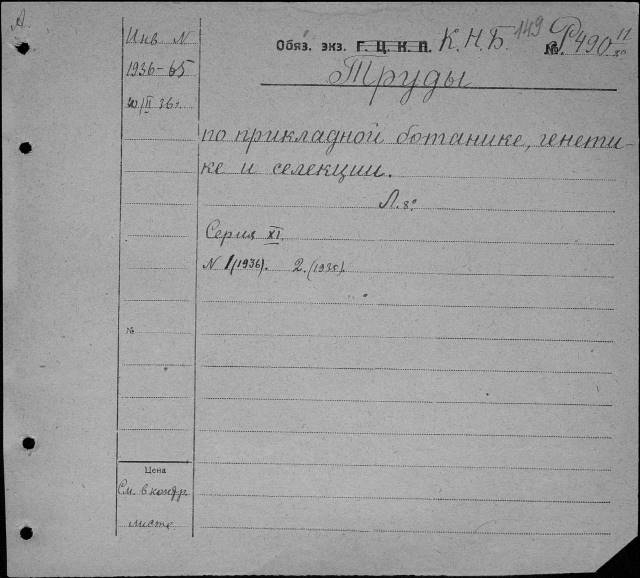 А
Инв N
1936-65
20/II 36г.
Обяз. экз. Г. Ц. К. П. К.Н.Б. 149 № Р490 11/30
Труды
по прикладной ботанике, генети-
ке и селекции.
Л. 8º
Серия XI.
N 1 (1936). 2. (1935).
№
Цена
См. в контр.
листе